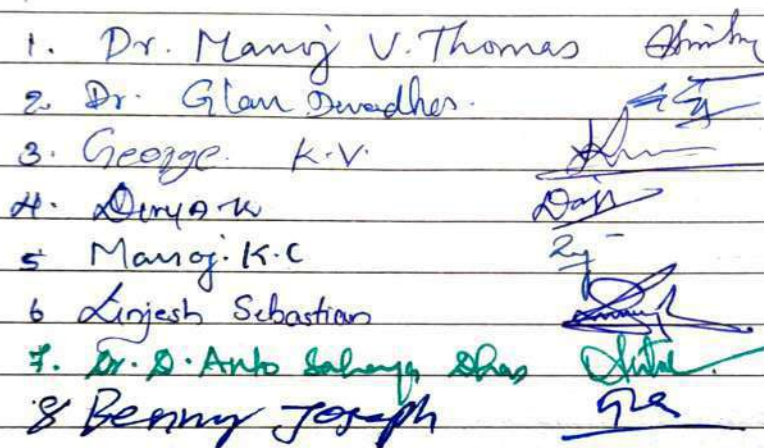 1. Dr. Manoj V. Thomas
2. Dr. Glan Devadhas.
3. George. K.V.
4. Divya K
5 Manoj. K.C
6 Linjesh Sebastian
7. Dr. D. Anto Sahaya Dhas
8 Benny Joseph